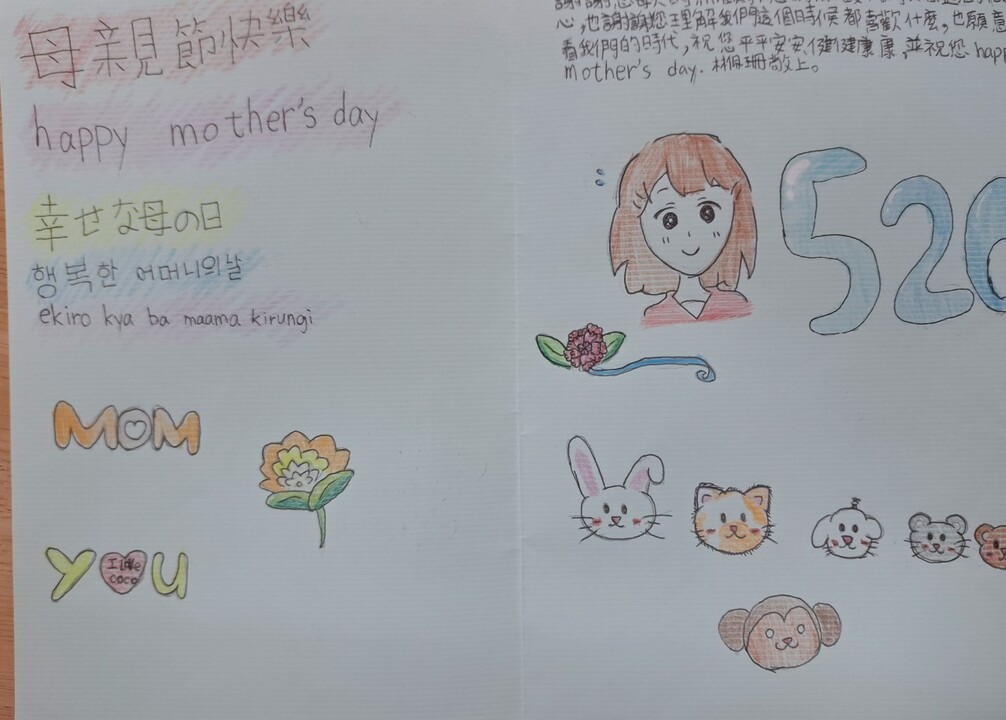 母親節快樂
happy mother's day
幸せな母の日
행복한 어머니의날
ekiro kya ba maama kirungi
MOM
YOU
I love
coco
心,也謝謝您理解我們這個時候都喜歡什麼,也願意
看我們的時代,祝您平平安安健健康康,並祝您 happ
mother's day. 敬上。
520